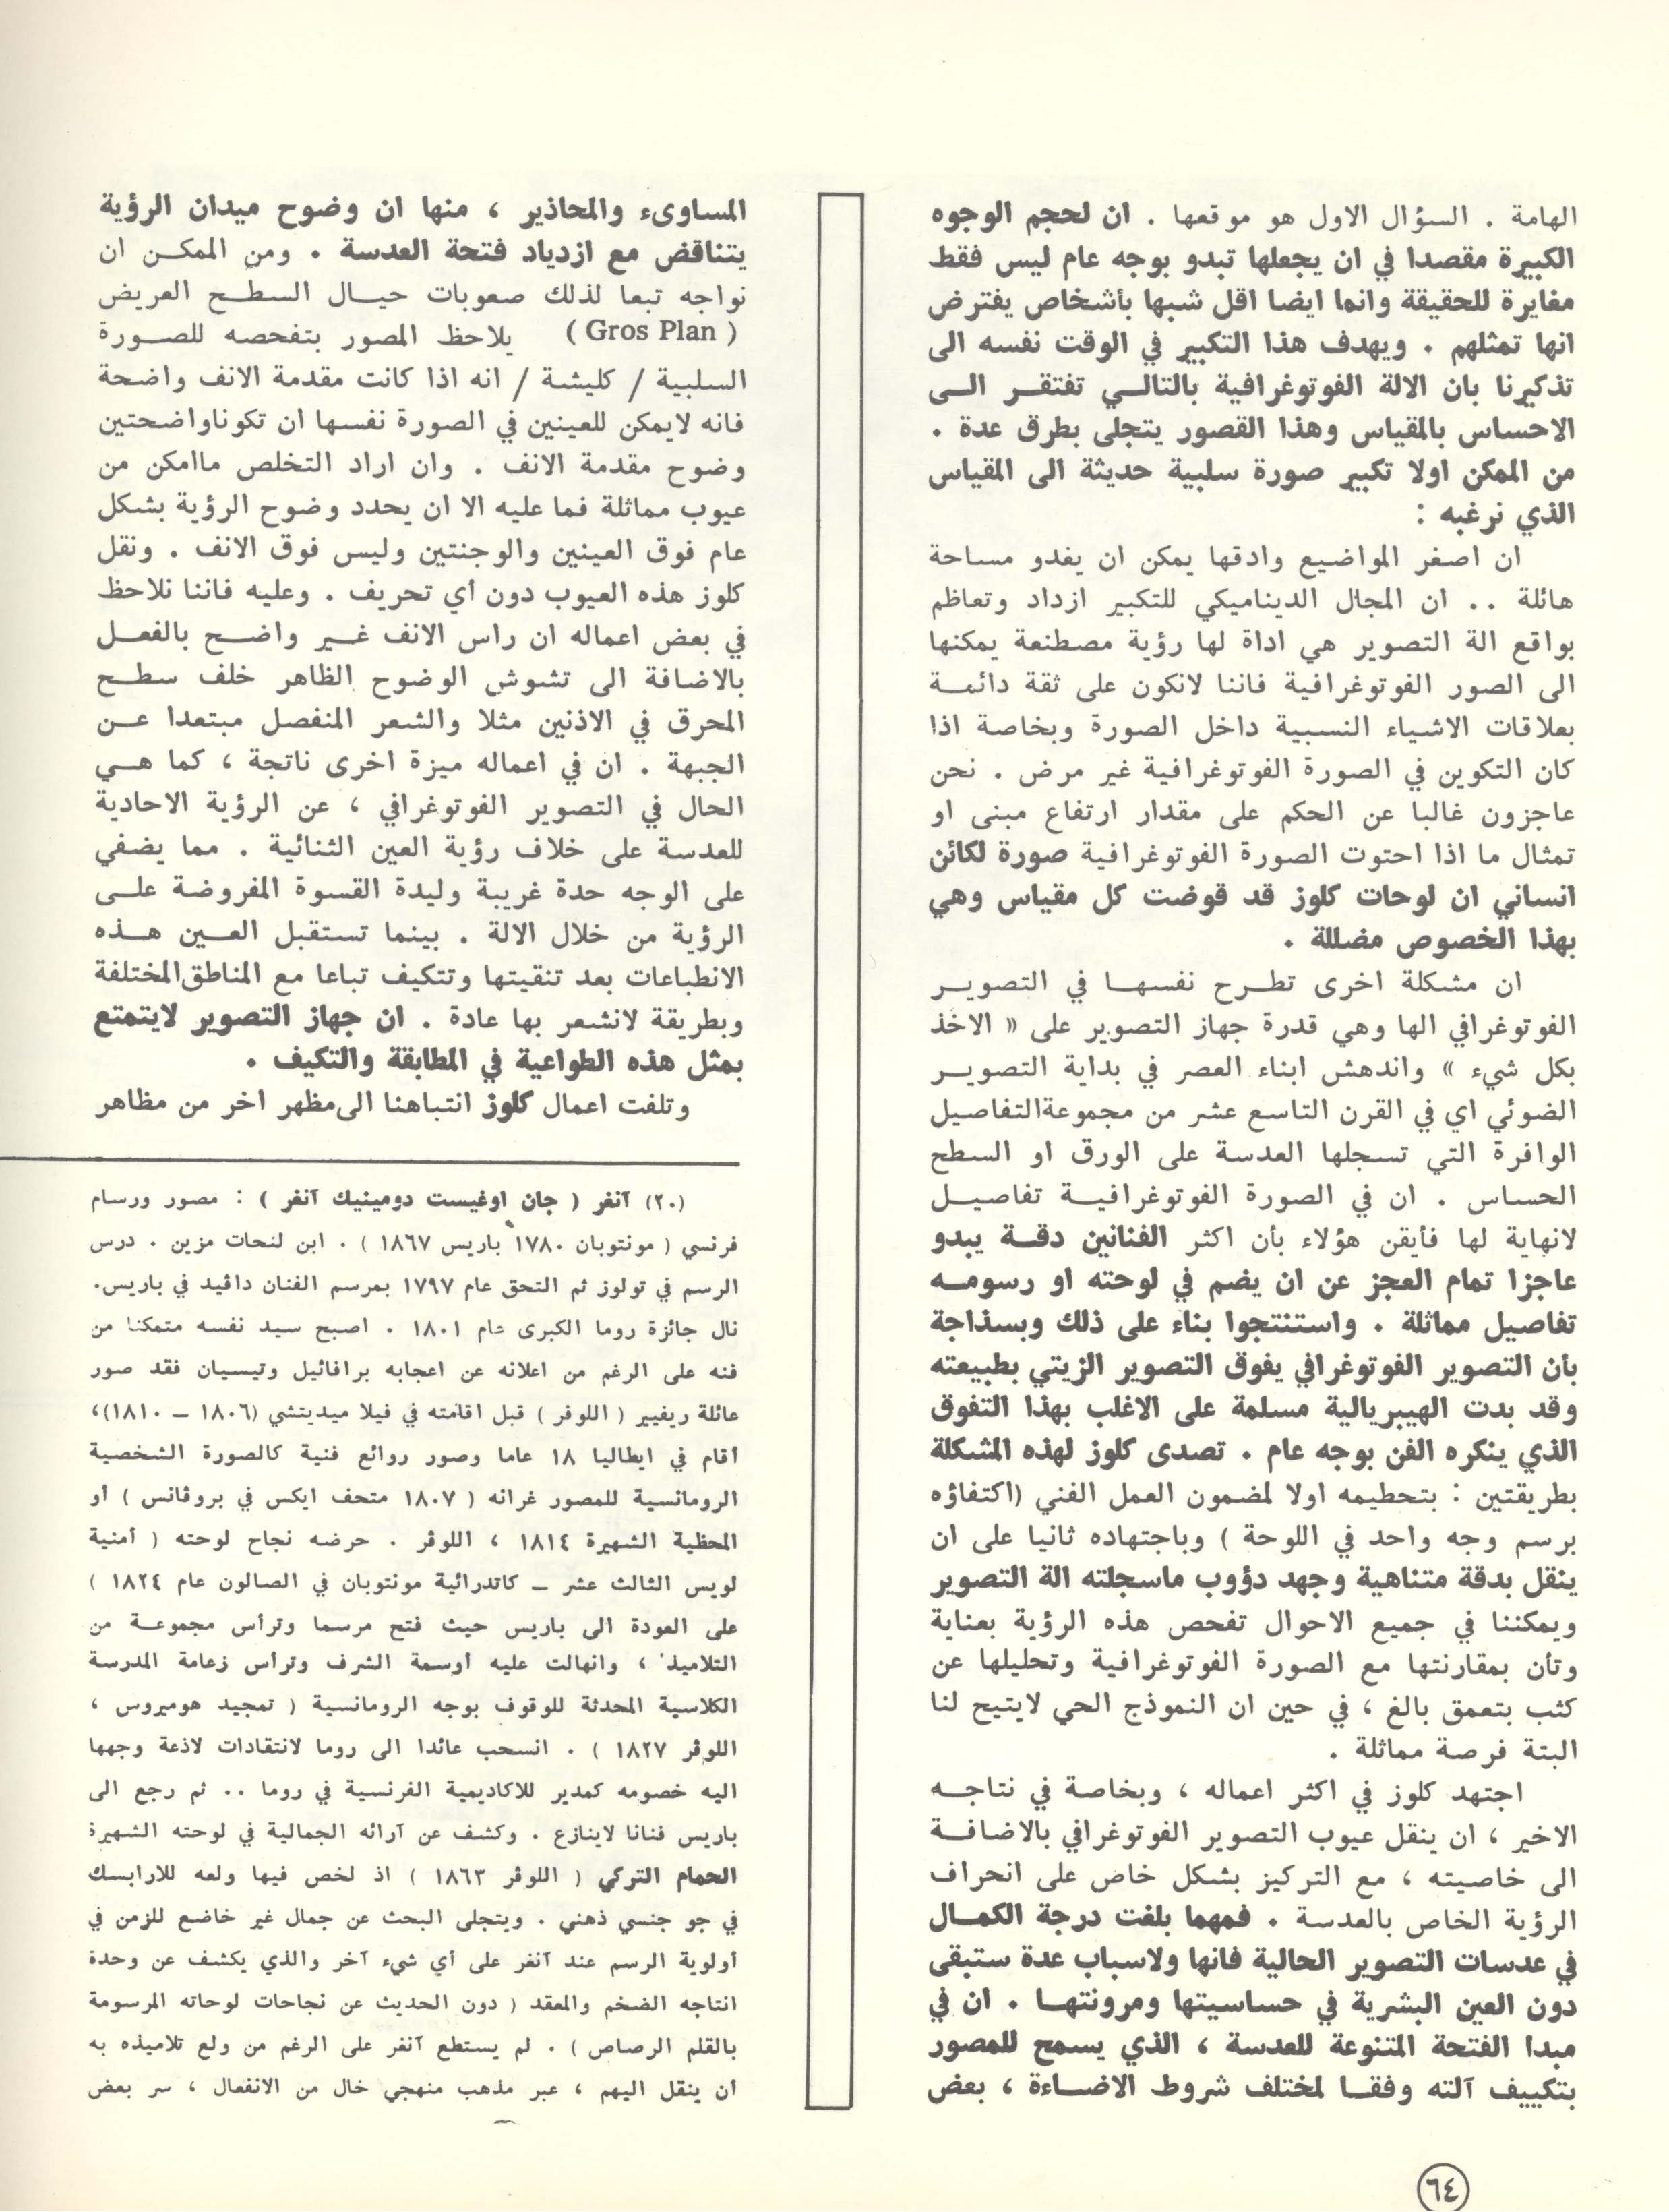 الهامة . السؤال الاول هو موقعها . ان لحجم الوجوه
الكبيرة مقصدا في ان يجعلها تبدو بوجه عام ليس فقط
مغايرة للحقيقة وانما ايضا اقل شبها بأشخاص يفترض
انها تمثلهم . ويهدف هذا التكبير في الوقت نفسه الى
تذكيرنا بان الالة الفوتوغرافية بالتالي تفتقر الى
الاحساس بالمقياس وهذا القصور يتجلى بطرق عدة .
من الممكن اولا تكبير صورة سلبية حديثة الى المقياس
الذي نرغبه :
ان اصغر المواضيع وادقها يمكن ان يغدو مساحة
هائلة .. ان المجال الديناميكي للتكبير ازداد وتعاظم
بواقع الة التصوير هي اداة لها رؤية مصطنعة يمكنها
الى الصور الفوتوغرافية فاننا لانكون على ثقة دائمة
بعلاقات الاشياء النسبية داخل الصورة وبخاصة اذا
كان التكوين في الصورة الفوتوغرافية غير مرض . نحن
عاجزون غالبا عن الحكم على مقدار ارتفاع مبنى او
تمثال ما اذا احتوت الصورة الفوتوغرافية صورة لكائن
انساني ان لوحات كلوز قد قوضت كل مقياس وهي
بهذا الخصوص مضللة .
ان مشكلة اخرى تطرح نفسها في التصوير
الفوتوغرافي الها وهي قدرة جهاز التصوير على « الاخذ
بكل شيء » واندهش ابناء العصر في بداية التصوير
الضوئي اي في القرن التاسع عشر من مجموعةالتفاصيل
الوافرة التي تسجلها العدسة على الورق او السطح
الحساس . ان في الصورة الفوتوغرافية تفاصيل
لانهاية لها فأيقن هؤلاء بأن اكثر الفنانين دقة يبدو
عاجزا تمام العجز عن ان يضم في لوحته او رسومه
تفاصيل مماثلة . واستنتجوا بناء على ذلك وبسذاجة
بأن التصوير الفوتوغرافي يفوق التصوير الزيتي بطبيعته
وقد بدت الهيبريالية مسلمة على الاغلب بهذا التفوق
الذي ينكره الفن بوجه عام . تصدى كلوز لهذه المشكلة
بطريقتين : بتحطيمه اولا لمضمون العمل الفني (اكتفاؤه
برسم وجه واحد في اللوحة ) وباجتهاده ثانيا على ان
ينقل بدقة متناهية وجهد دؤوب ماسجلته الة التصوير
ويمكننا في جميع الاحوال تفحص هذه الرؤية بعناية
وتأن بمقارنتها مع الصورة الفوتوغرافية وتحليلها عن
كثب بتعمق بالغ ، في حين ان النموذج الحي لايتيح لنا
البتة فرصة مماثلة .
اجتهد كلوز في اكثر اعماله ، وبخاصة في نتاجه
الاخير ، ان ينقل عيوب التصوير الفوتوغرافي بالاضافة
الى خاصيته ، مع التركيز بشكل خاص على انحراف
الرؤية الخاص بالعدسة . فمهما بلغت درجة الكمال
في عدسات التصوير الحالية فانها ولاسباب عدة ستبقى
دون العين البشرية في حساسيتها ومرونتها . ان في
مبدا الفتحة المتنوعة للعدسة ، الذي يسمح للمصور
بتكييف آلته وفقا لمختلف شروط الاضاءة ، بعض
المساوىء والمحاذير ، منها ان وضوح ميدان الرؤية
يتناقض مع ازدياد فتحة العدسة . ومن الممكن ان
نواجه تبعا لذلك صعوبات حيال السطح العريض
( Gros Plan ) يلاحظ المصور بتفحصه للصورة
السلبية / كليشة / انه اذا كانت مقدمة الانف واضحة
فانه لايمكن للعينين في الصورة نفسها ان تكوناواضحتين
وضوح مقدمة الانف . وان اراد التخلص ماامكن من
عيوب مماثلة فما عليه الا ان يحدد وضوح الرؤية بشكل
عام فوق العينين والوجنتين وليس فوق الانف . ونقل
كلوز هذه العيوب دون أي تحريف . وعليه فاننا نلاحظ
في بعض اعماله ان راس الانف غير واضح بالفعل
بالاضافة الى تشوش الوضوح الظاهر خلف سطح
المحرق في الاذنين مثلا والشعر المنفصل مبتعدا عن
الجبهة . ان في اعماله ميزة اخرى ناتجة ، كما هي
الحال في التصوير الفوتوغرافي ، عن الرؤية الاحادية
للعدسة على خلاف رؤية العين الثنائية . مما يضفي
على الوجه حدة غريبة وليدة القسوة المفروضة على
الرؤية من خلال الالة . بينما تستقبل العين هذه
الانطباعات بعد تنقيتها وتتكيف تباعا مع المناطق المختلفة
وبطريقة لانشعر بها عادة . ان جهاز التصوير لايتمتع
بمثل هذه الطواعية في المطابقة والتكيف .
وتلفت اعمال كلوز انتباهنا الى مظهر اخر من مظاهر
(٢٠) آنغر ( جان اوغيست دومينيك آنغر ) : مصور ورسام
فرنسي ( مونتوبان ١٧٨٠ باريس ١٨٦٧ ) . ابن لنحات مزين . درس
الرسم في تولوز ثم التحق عام ١٧٩٧ بمرسم الفنان داڤيد في باريس.
نال جائزة روما الكبرى عام ١٨٠١ . اصبح سيد نفسه متمكنا من
فنه على الرغم من اعلانه عن اعجابه برافائيل وتيسيان فقد صور
عائلة ريفيير ( اللوفر ) قبل اقامته في فيلا ميديتشي (١٨٠٦ – ١٨١٠)،
أقام في ايطاليا ١٨ عاما وصور روائع فنية كالصورة الشخصية
الرومانسية للمصور غرانه ( ١٨٠٧ متحف ايكس في بروڤانس ) أو
المحظية الشهيرة ١٨١٤ ، اللوڤر . حرضه نجاح لوحته ( أمنية
لويس الثالث عشر – كاتدرائية مونتوبان في الصالون عام ١٨٢٤ )
على العودة الى باريس حيث فتح مرسما وترأس مجموعة من
التلاميذ ، وانهالت عليه أوسمة الشرف وترأس زعامة المدرسة
الكلاسية المحدثة للوقوف بوجه الرومانسية ( تمجيد هوميروس ،
اللوڤر ١٨٢٧ ) . انسحب عائدا الى روما لانتقادات لاذعة وجهها
اليه خصومه كمدير للاكاديمية الفرنسية في روما .. ثم رجع الى
باريس فنانا لاينازع . وكشف عن آرائه الجمالية في لوحته الشهيرة
الحمام التركي ( اللوڤر ١٨٦٣ ) اذ لخص فيها ولعه للارابسك
في جو جنسي ذهني . ويتجلى البحث عن جمال غير خاضع للزمن في
أولوية الرسم عند آنغر على أي شيء آخر والذي يكشف عن وحدة
انتاجه الضخم والمعقد ( دون الحديث عن نجاحات لوحاته المرسومة
بالقلم الرصاص ) . لم يستطع آنغر على الرغم من ولع تلاميذه به
أن ينقل اليهم ، عبر مذهب منهجي خال من الانفعال ، سر بعض
٦٤